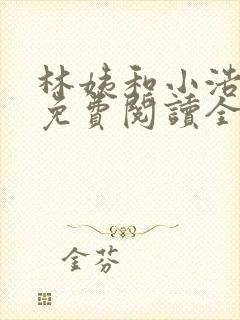 林姨和小浩
免費閱讀全
金芬